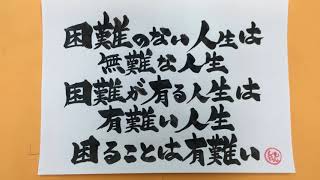 困難のない人生は
無難な人生
困難が有る人生は
有難い人生
困ることは有難い